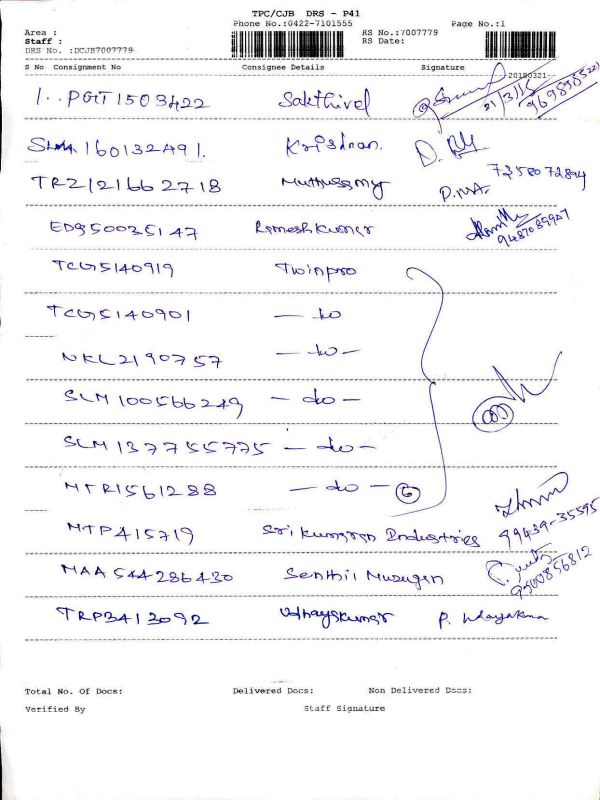 TPC/CJB DRS - P41
Phone No.:0422-7101555 Page No.:1
Area :
Staff :
DRS No. :DCJB7007779
RS No.:7007779
RS Date:
S No Consignment No Consignee Details Signature
20180321
1.. PGT1503422 Sakthivel 21/3/18
SLM 160132491. Krishnan.
7358072894
TR2121662718 Muthusamy
ED950035147 Rameshkumar
TCG5140919 Twinpro
TCG5140901 — do
NKL2190757 — do —
SLM 100566249 — do —
SLM 137755775 — do —
MTR1561288 — do — 6
MTP415719 Sri Kumaran Industries 99439-35595
MAA 544286430 Senthil Murugan 9500856812
TRP3413092 Udhayakumar P. Udayakumar
Total No. Of Docs: Delivered Docs: Non Delivered Docs:
Verified By Staff Signature